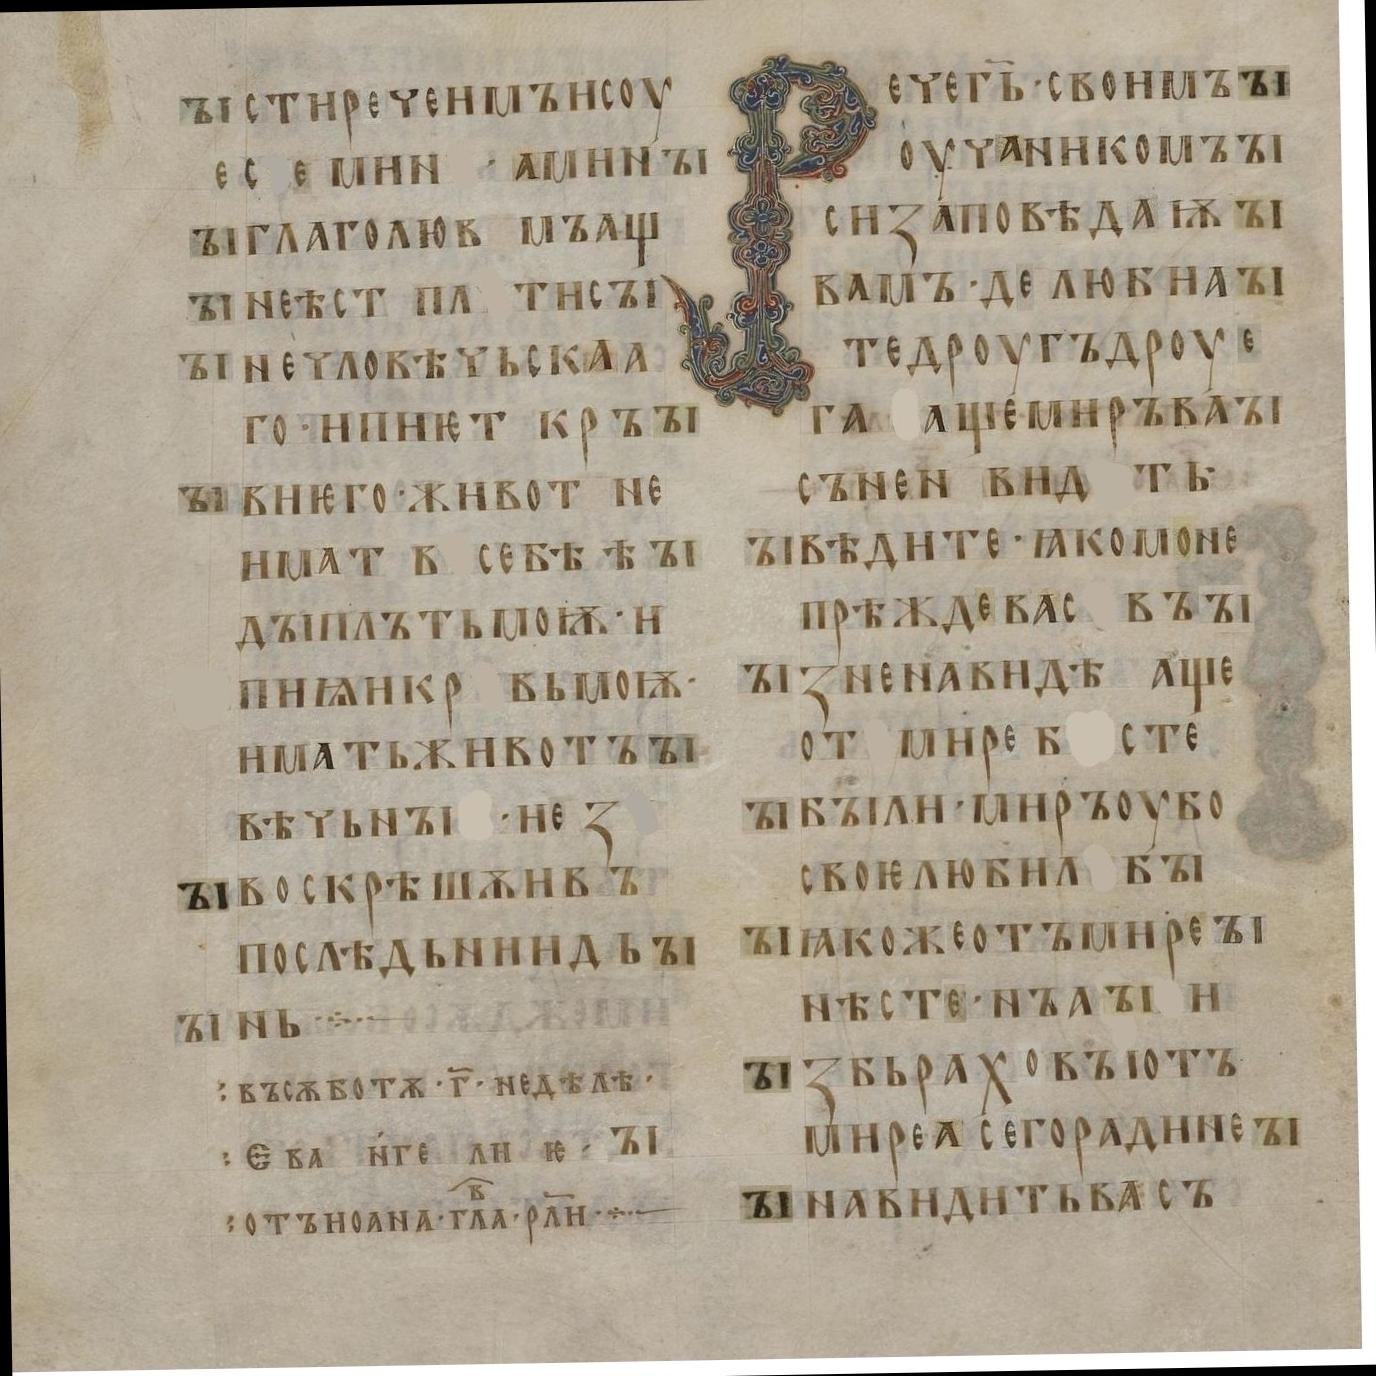 ꙑстиречеимъисоу
ес е мнн · аминꙑ
ꙑглаголюв мъащ
ꙑнеѣст пл тисꙑ
ꙑнечловѣчьскаа
го·ипиѥт кръꙑ
ꙑвнѥго·живот не
имат в себѣ ѣꙑ
дꙑплътьмоѭ·и
пиѩикр вьмоѭ·
иматьживотъꙑ
вѣчьнꙑ ·не з
ꙑвоскрѣшѫив ъ
послѣдьниид ьꙑ
ꙑнь
:въсѫботѫ·г҃·недѣлѣ·
:Єва нге ли ѥ·ꙑ
:отъиоана·гла в·рл҃и·
ечег҃ь·своимъꙑ
оучаникомъꙑ
сизаповѣдаѭꙑ
вамъ·де любнаꙑ
тедроугъдроуе
га ащемиръваꙑ
съиен вид ть
ꙑвѣдите·ꙗкомоне
прѣждевас въꙑ
ꙑзненавидѣ аще
от мире б сте
ꙑбꙑли·миръоубо
своѥлюбил бꙑ
ꙑꙗкожеотъмиреꙑ
нѣсте·нъаꙑ и
ꙑзбьраховꙑотъ
миреа сегорадинеꙑ
ꙑнавидитьвасъ